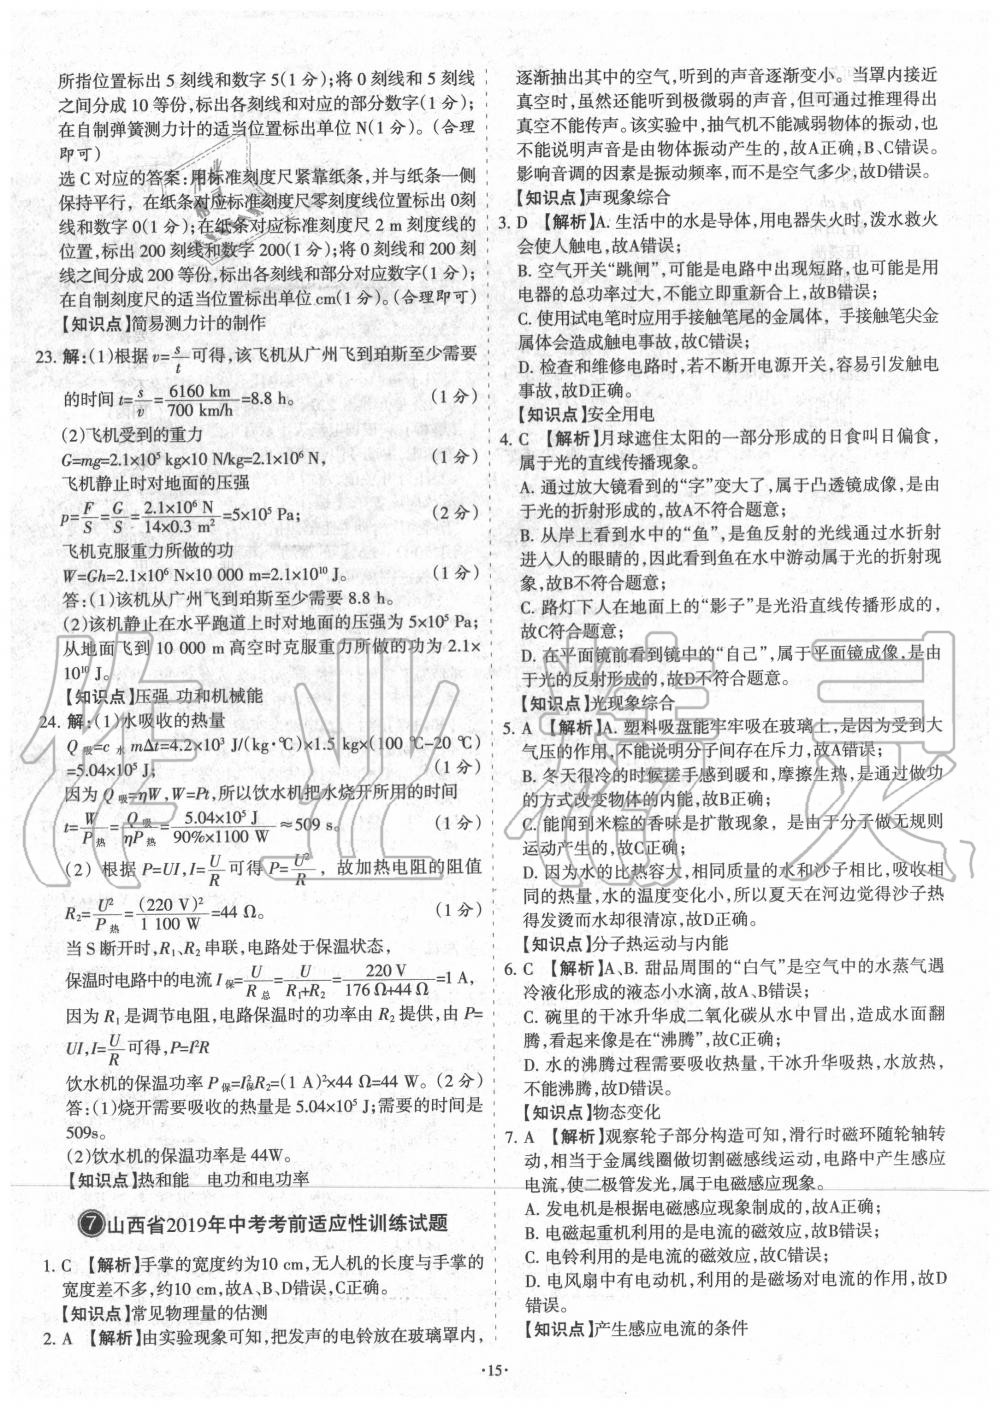 所指位置标出 5 刻线和数字 5(1 分);将 0 刻线和 5 刻线
之间分成 10 等份,标出各刻线和对应的部分数字(1 分);
在自制弹簧测力计的适当位置标出单位 N(1 分)。(合理
即可)
选 C 对应的答案:用标准刻度尺紧靠纸条,并与纸条一侧
保持平行，在纸条对应标准刻度尺零刻度线位置标出 0刻
线和数字 0(1 分);在纸条对应标准刻度尺 2 m 刻度线的
位置,标出 200 刻线和数字 200(1 分);将 0 刻线和 200 刻
线之间分成 200 等份,标出各刻线和对应的部分数字(1分);
在自制刻度尺的适当位置标出单位 cm(1 分)。(合理即可)
【知识点】简易测力计的制作
23. 解:(1)根据 v=s/t 可得,该飞机从广州飞到珀斯至少需要
的时间 t=s/v=6160 km/700 km/h=8.8 h。 (1 分)
(2)飞机受到的重力
G=mg=2.1×10⁵ kg×10 N/kg=2.1×10⁶ N, (1 分)
飞机静止时对地面的压强
p=F/S=G/S=2.1×10⁶ N/14×0.3 m²=5×10⁵ Pa; (2 分)
飞机克服重力所做的功
W=Gh=2.1×10⁶ N×10 000 m=2.1×10¹⁰ J。 (1 分)
答:(1)该机从广州飞到珀斯至少需要 8.8 h。
(2)该机静止在水平跑道上时对地面的压强为 5×10⁵ Pa;
从地面飞到 10 000 m 高空时克服重力所做的功为 2.1×
10¹⁰ J。
【知识点】压强 功和机械能
24. 解:(1)水吸收的热量
Q吸=c水 mΔt=4.2×10³ J/(kg·℃)×1.5 kg×(100 ℃-20 ℃)
=5.04×10⁵ J; (1 分)
因为 Q吸=ηW,W=Pt,所以饮水机把水烧开所用的时间
t=W/P热=Q吸/ηP热=5.04×10⁵ J/90%×1100 W≈509 s。 (1 分)
(2) 根据 P=UI,I=U/R 可得 P=U²/R，故加热电阻的阻值
R₂=U²/P热=(220 V)²/1 100 W=44 Ω。 (1 分)
当 S 断开时,R₁、R₂ 串联,电路处于保温状态,
保温时电路中的电流 I保=U/R总=U/R₁+R₂=220 V/176 Ω+44 Ω=1 A,
因为 R₁ 是调节电阻,电路保温时的功率由 R₂ 提供,由 P=
UI,I=U/R 可得,P=I²R
饮水机的保温功率 P保=I²保R₂=(1 A)²×44 Ω=44 W。(2 分)
答:(1)烧开需要吸收的热量是 5.04×10⁵ J;需要的时间是
509s。
(2)饮水机的保温功率是 44W。
【知识点】热和能 电功和电功率
7 山西省2019年中考考前适应性训练试题
1. C 【解析】手掌的宽度约为10 cm,无人机的长度与手掌的
宽度差不多,约10 cm,故A、B、D错误,C正确。
【知识点】常见物理量的估测
2. A 【解析】由实验现象可知,把发声的电铃放在玻璃罩内,
逐渐抽出其中的空气,听到的声音逐渐变小。当罩内接近
真空时,虽然还能听到极微弱的声音,但可通过推理得出
真空不能传声。该实验中,抽气机不能减弱物体的振动,也
不能说明声音是由物体振动产生的,故A正确,B、C错误。
影响音调的因素是振动频率,而不是空气多少,故D错误。
【知识点】声现象综合
3. D 【解析】A. 生活中的水是导体,用电器失火时,泼水救火
会使人触电,故A错误;
B. 空气开关“跳闸”,可能是电路中出现短路,也可能是用
电器的总功率过大,不能立即重新合上,故B错误;
C. 使用试电笔时应用手接触笔尾的金属体，手接触笔尖金
属体会造成触电事故,故C错误;
D. 检查和维修电路时,若不断开电源开关，容易引发触电
事故,故D正确。
【知识点】安全用电
4. C 【解析】月球遮住太阳的一部分形成的日食叫日偏食,
属于光的直线传播现象。
A. 通过放大镜看到的“字”变大了,属于凸透镜成像,是由
于光的折射形成的,故A不符合题意;
B. 从岸上看到水中的“鱼”,是鱼反射的光线通过水折射
进入人的眼睛的,因此看到鱼在水中游动属于光的折射现
象,故B不符合题意;
C. 路灯下人在地面上的“影子”是光沿直线传播形成的,
故C符合题意;
D. 在平面镜前看到镜中的“自己”,属于平面镜成像,是由
于光的反射形成的,故D不符合题意。
【知识点】光现象综合
5. A 【解析】A. 塑料吸盘能牢牢吸在玻璃上,是因为受到大
气压的作用,不能说明分子间存在斥力,故A错误;
B. 冬天很冷的时候搓手感到暖和,摩擦生热,是通过做功
的方式改变物体的内能,故B正确;
C. 能闻到米粽的香味是扩散现象，是由于分子做无规则
运动产生的,故C正确;
D. 因为水的比热容大,相同质量的水和沙子相比,吸收相
同的热量,水的温度变化小,所以夏天在河边觉得沙子热
得发烫而水却很清凉,故D正确。
【知识点】分子热运动与内能
6. C 【解析】A、B. 甜品周围的“白气”是空气中的水蒸气遇
冷液化形成的液态小水滴,故A、B错误;
C. 碗里的干冰升华成二氧化碳从水中冒出，造成水面翻
腾,看起来像是在“沸腾”,故C正确;
D. 水的沸腾过程需要吸收热量,干冰升华吸热,水放热,
不能沸腾,故D错误。
【知识点】物态变化
7. A 【解析】观察轮子部分构造可知,滑行时磁环随轮轴转
动,相当于金属线圈做切割磁感线运动,电路中产生感应
电流,使二极管发光,属于电磁感应现象。
A. 发电机是根据电磁感应现象制成的,故A正确;
B. 电磁起重机利用的是电流的磁效应,故B错误;
C. 电铃利用的是电流的磁效应,故C错误;
D. 电风扇中有电动机,利用的是磁场对电流的作用,故D
错误。
【知识点】产生感应电流的条件
·15·
作业精灵